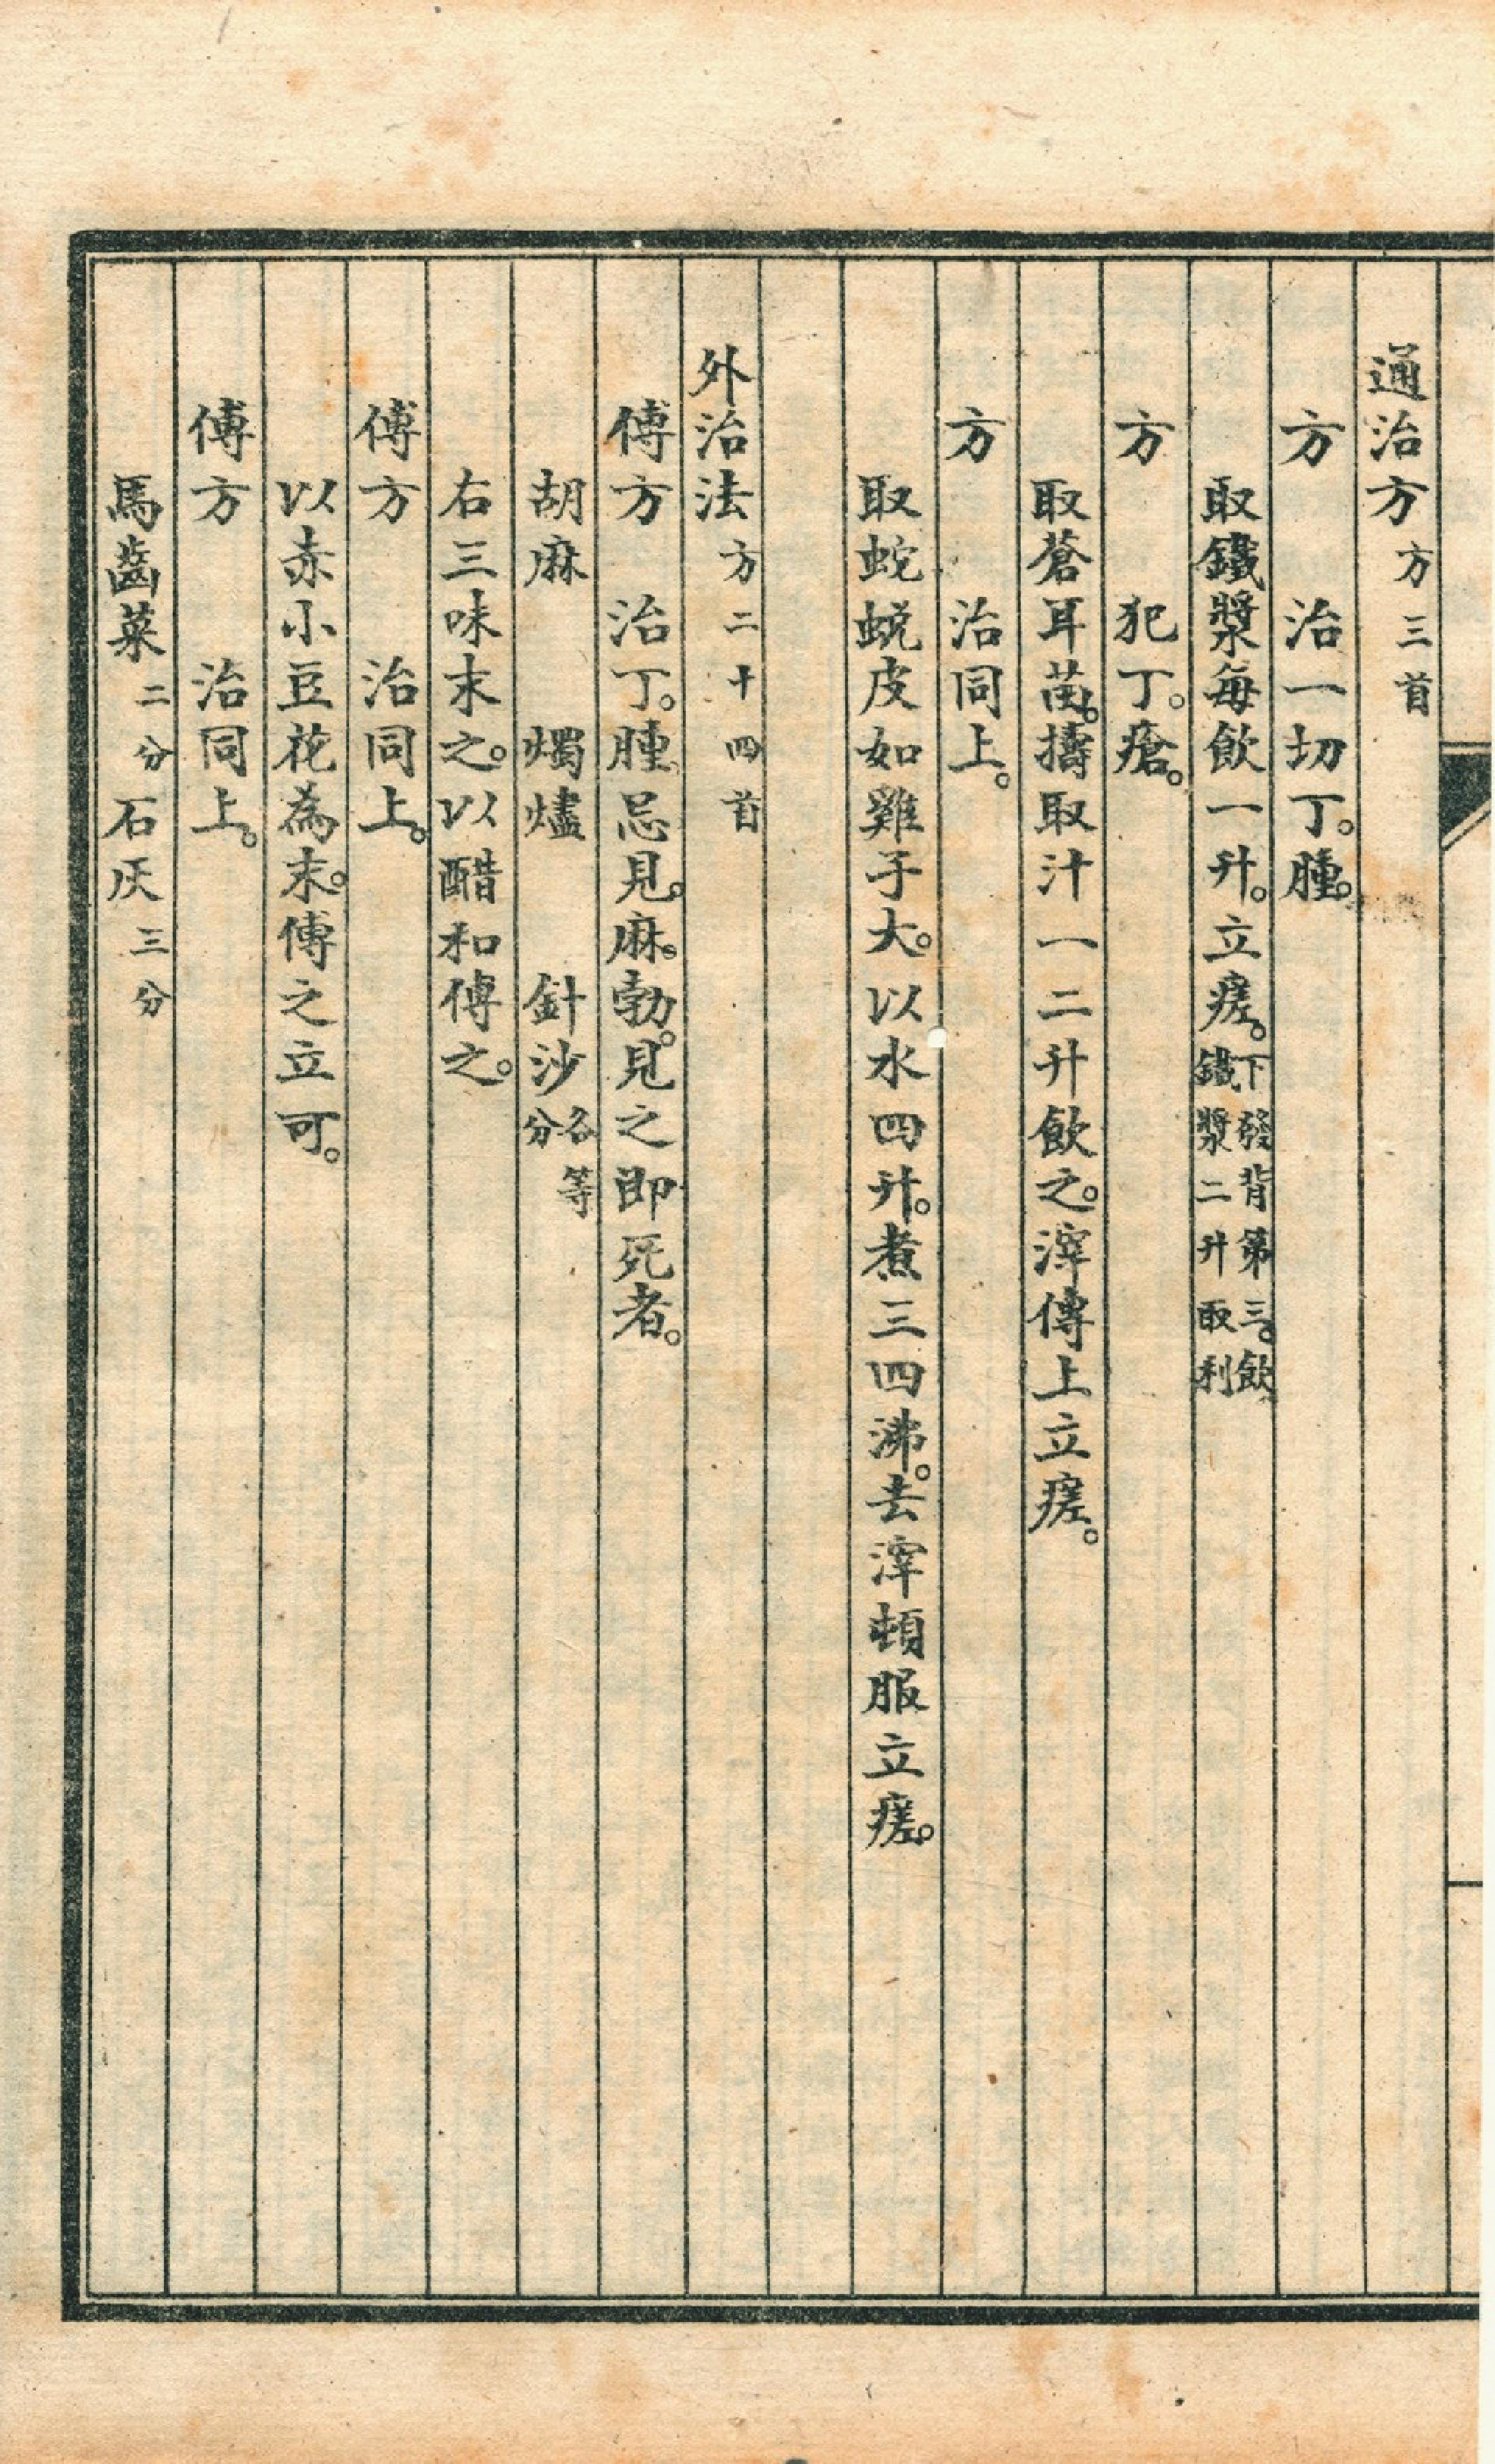 通治方方三首
方　治一切丁。腫。
取鐵漿每飲一升。立瘥。下發背第三。飲鐵漿二升取利
方　犯丁。瘡。
取蒼耳苗。擣取汁一二升飲之。滓傅上立瘥。
方　治同上。
取蛇蛻皮如雞子大。以水四升。煮三四沸。去滓頓服立瘥。
外治法方二十四首
傅方　治丁。腫忌見。麻。勃。見之即死者。
胡麻　燭燼　針沙各等分
右三味末之。以醋和傅之。
傅方　治同上。
以赤小豆花為末。傅之立可。
傅方　治同上。
馬齒菜二分石灰三分